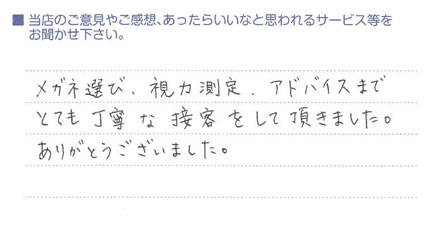 ■ 当店のご意見やご感想、あったらいいなと思われるサービス等を
お聞かせ下さい。
メガネ選び、視力測定、アドバイスまで
とても丁寧な接客をして頂きました。
ありがとうございました。